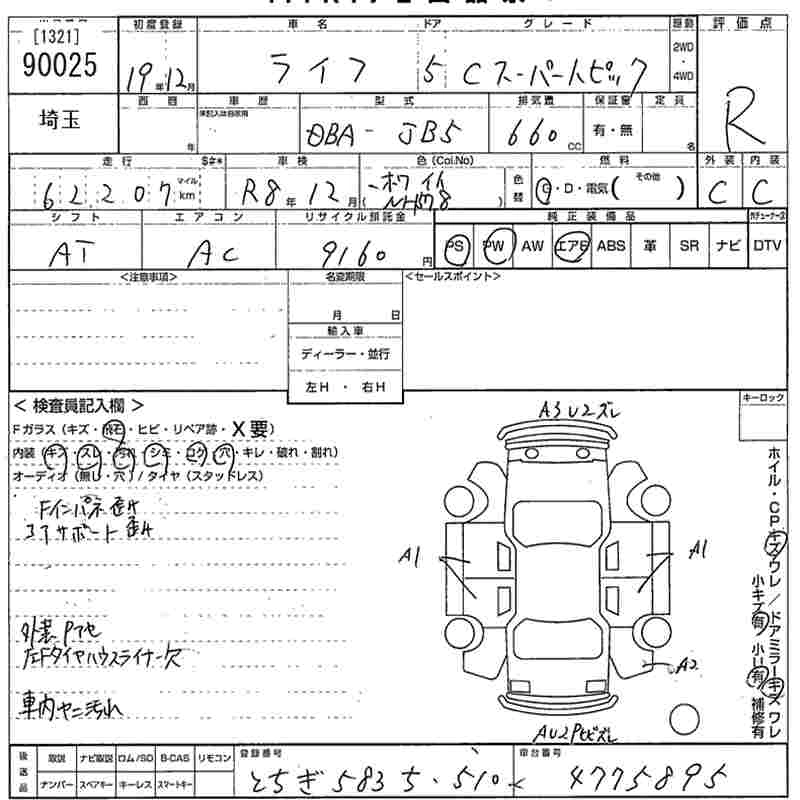 [1321]
90025
初度登録
車名
ドア
グレード
駆動
評価点
19年12月
ライフ
5
Cスーパートピック
2WD・4WD
R
埼玉
西暦
年
車歴
型式
排気量
保証書
定員
DBA-JB5
660cc
有・無
名
走行
車検
色(Col.No)
燃料
外装
内装
62207
マイル
km
R8年12月
色替
G・D・電気(その他)
C
C
シフト
エアコン
リサイクル預託金
純正装備品
AT
AC
9160円
PS
PW
AW
エアB
ABS
革
SR
ナビ
DTV
<注意事項>
名変期限
<セールスポイント>
月 日
輸入車
ディーラー・並行
左H・右H
<検査員記入欄>
キーロック
Fガラス(キズ・飛石・ヒビ・リペア跡・X要)
内装(キズ・スレ・汚れ・シミ・コゲ・穴・キレ・破れ・割れ)
オーディオ(無し・穴)/タイヤ(スタッドレス)
Fインパネ歪み
コアサポート歪み
外装Pアセ
左Fタイヤハウスライナー欠
車内ヤニ汚れ
A3U2ズレ
A1
A1
A2
AU2Pヒビズレ
ホイル・CPキズワレ/ドアミラーキズワレ
小キズ有 小U有 補修有
後送品
取説
ナビ取説
ロム/SD
B-CAS
リモコン
ナンバー
スペアキー
キーレス
スマートキー
登録番号
とちぎ583ち・510
車台番号
4775895